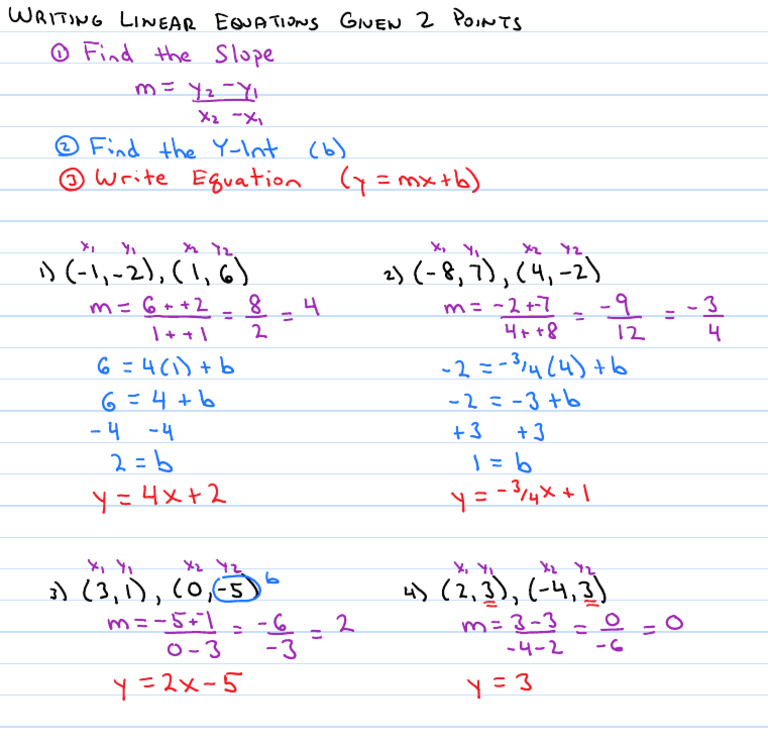 WRITING LINEAR EQUATIONS GIVEN 2 POINTS
① Find the Slope
m = y₂ - y₁
x₂ - x₁
② Find the Y-Int (b)
③ Write Equation (y = mx+b)
x₁ y₁ x₂ y₂
1) (-1, -2), (1, 6)
m = 6 + +2 = 8 = 4
1 + +1 2
6 = 4(1) + b
6 = 4 + b
-4 -4
2 = b
y = 4x + 2
x₁ y₁ x₂ y₂
2) (-8, 7), (4, -2)
m = -2 + -7 = -9 = -3
4 + +8 12 4
-2 = -3/4 (4) + b
-2 = -3 + b
+3 +3
1 = b
y = -3/4 x + 1
x₁ y₁ x₂ y₂
3) (3, 1), (0, -5) b
m = -5 + -1 = -6 = 2
0 - 3 -3
y = 2x - 5
x₁ y₁ x₂ y₂
4) (2, 3), (-4, 3)
m = 3 - 3 = 0 = 0
-4 - 2 -6
y = 3